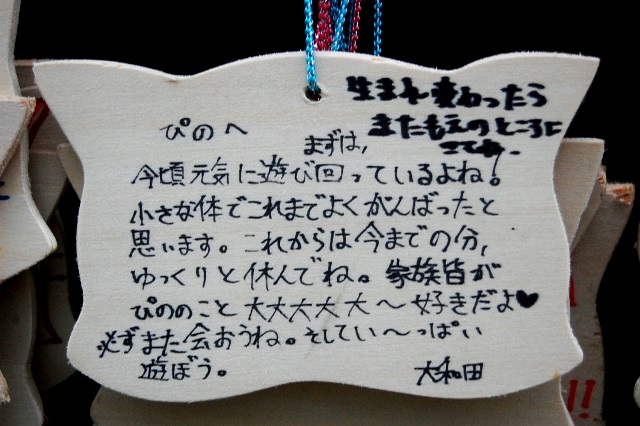 生まれ変わったら
またもえのところに
きてね。
ぴのへ
まずは、
今頃元気に遊び回っているよね。
小さな体でこれまでよくがんばったと
思います。これからは今までの分、
ゆっくりと休んでね。家族皆が
ぴののこと大大大大大〜好きだよ♥
必ずまた会おうね。そしてい〜っぱい
遊ぼう。
大和田
!!